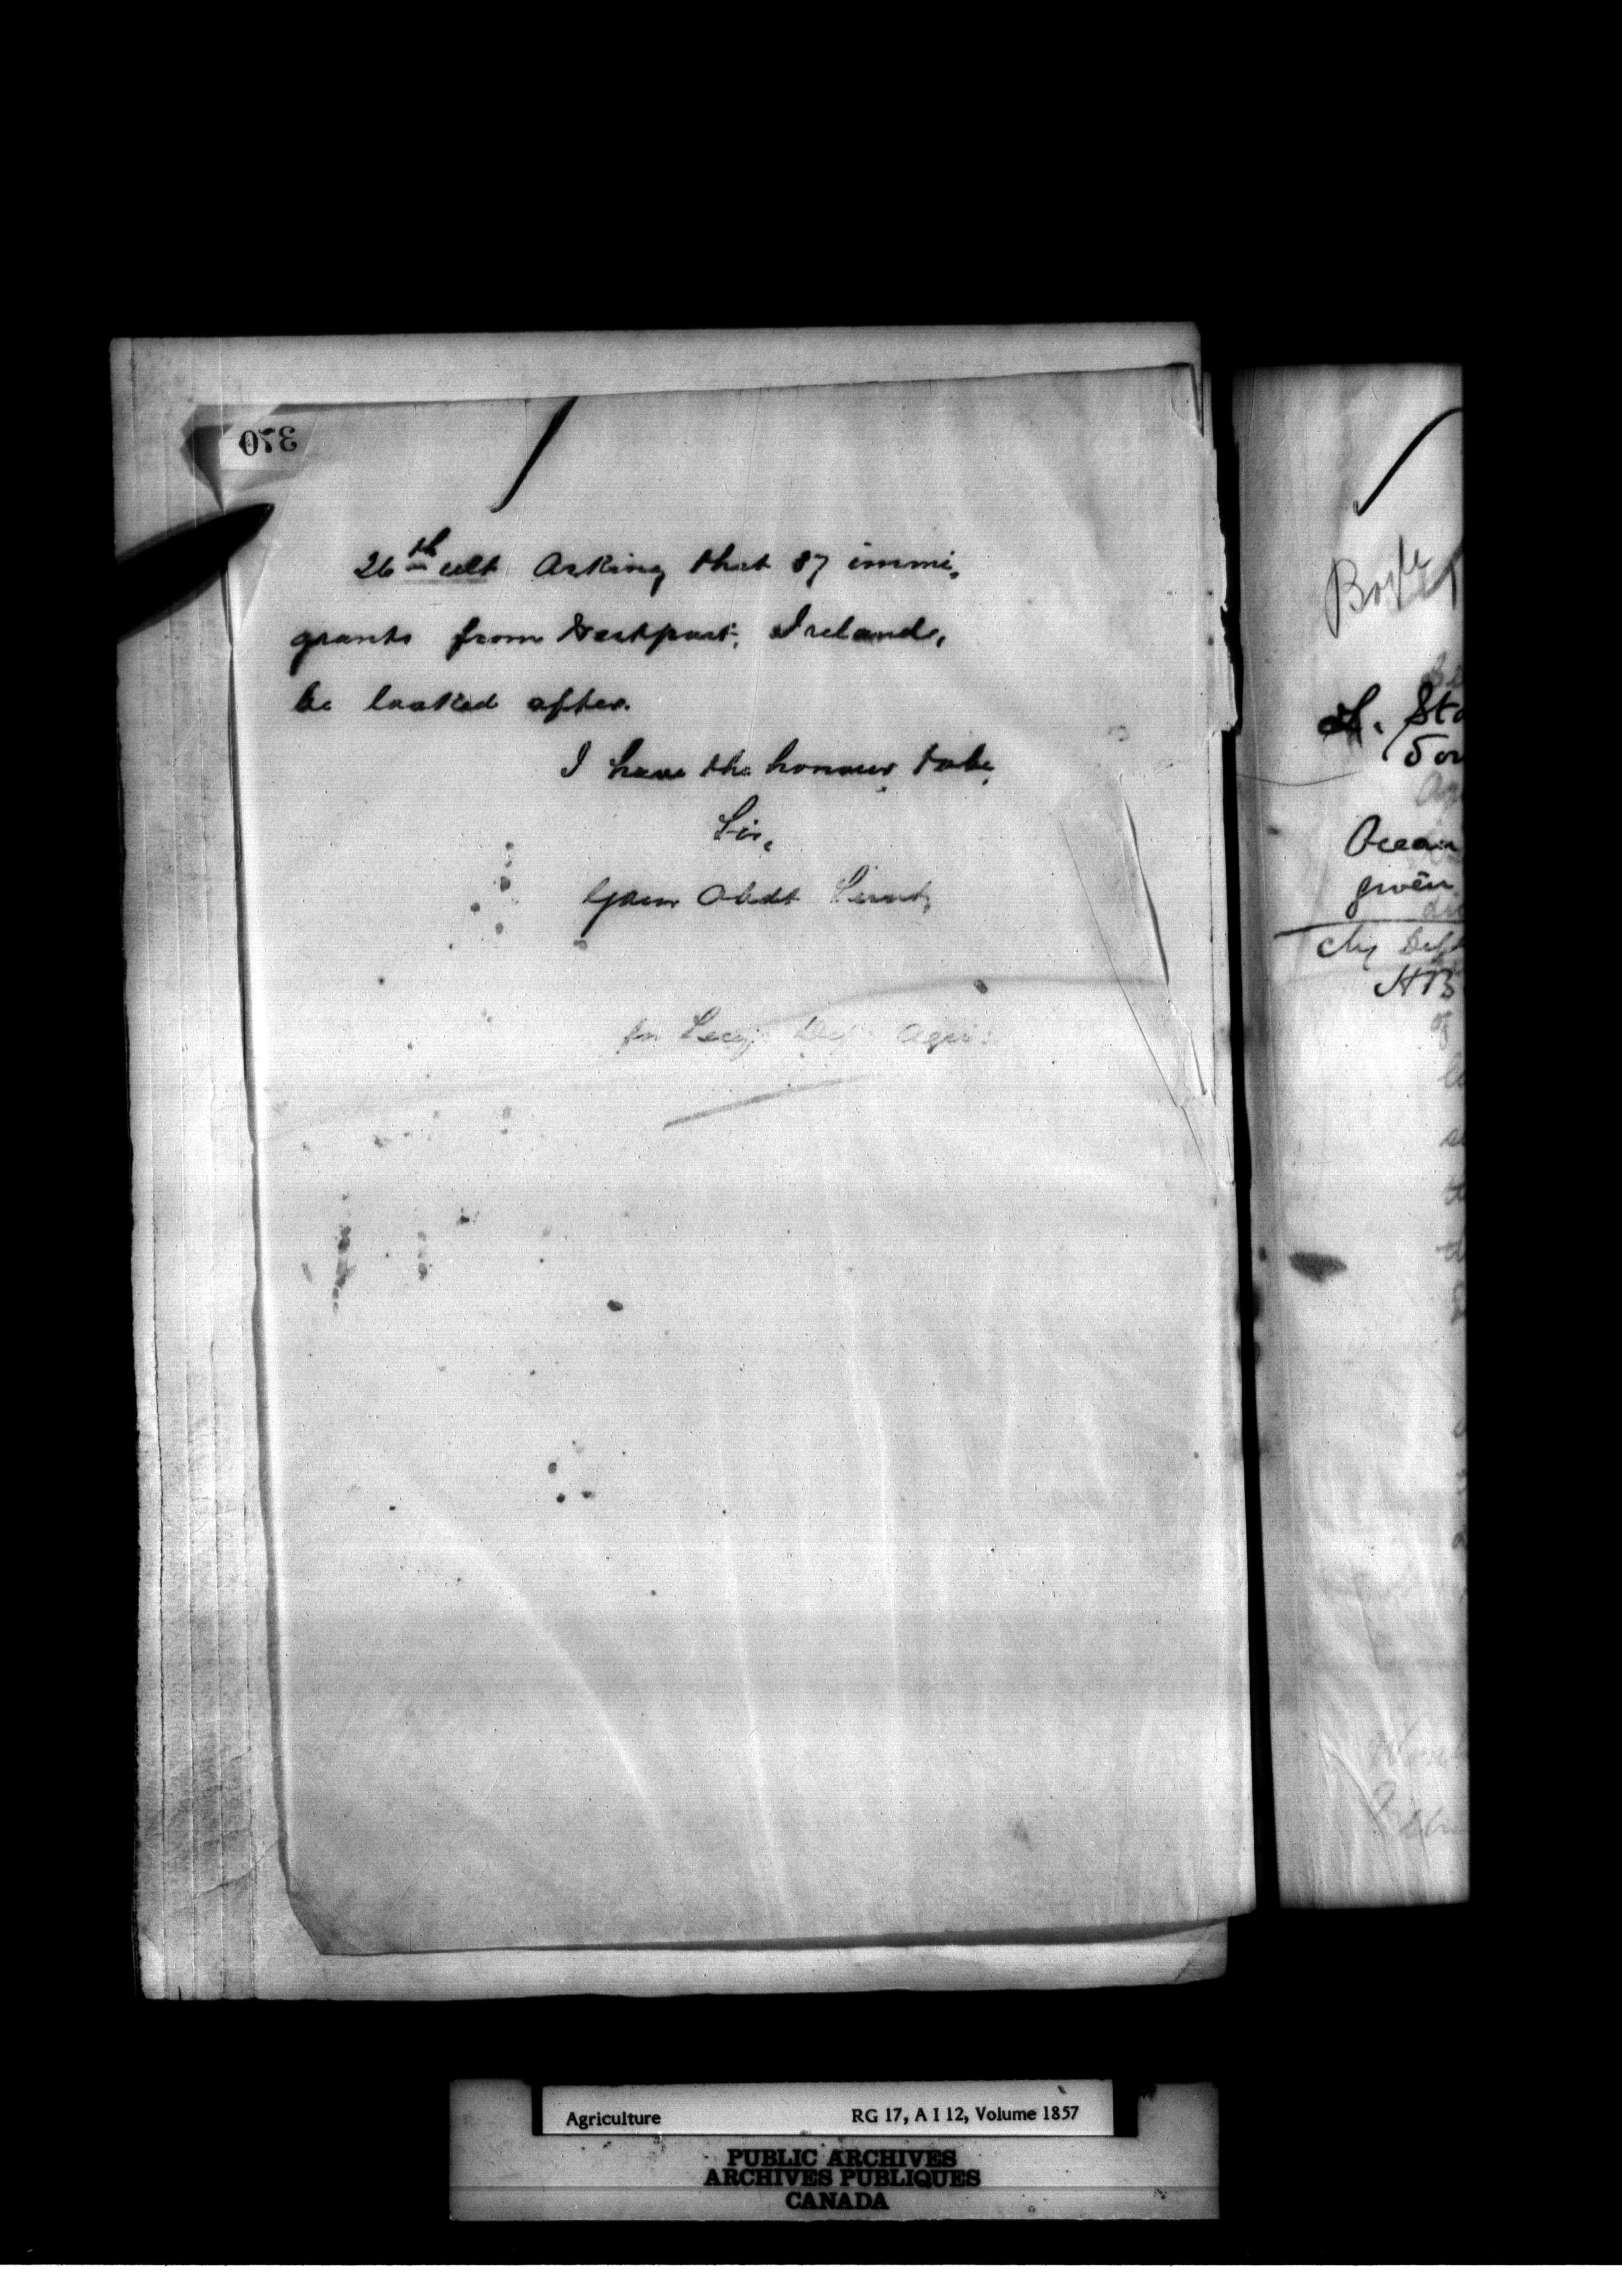 370
26th ult asking that 87 immi-
grants from Westport, Ireland,
be looked after.
I have the honour to be,
Sir,
Your Obedt Servt,
for Secy. Dept. Agri:
St
Ocean
given
My Dept
HB
Agriculture RG 17, A I 12, Volume 1857
PUBLIC ARCHIVES
ARCHIVES PUBLIQUES
CANADA